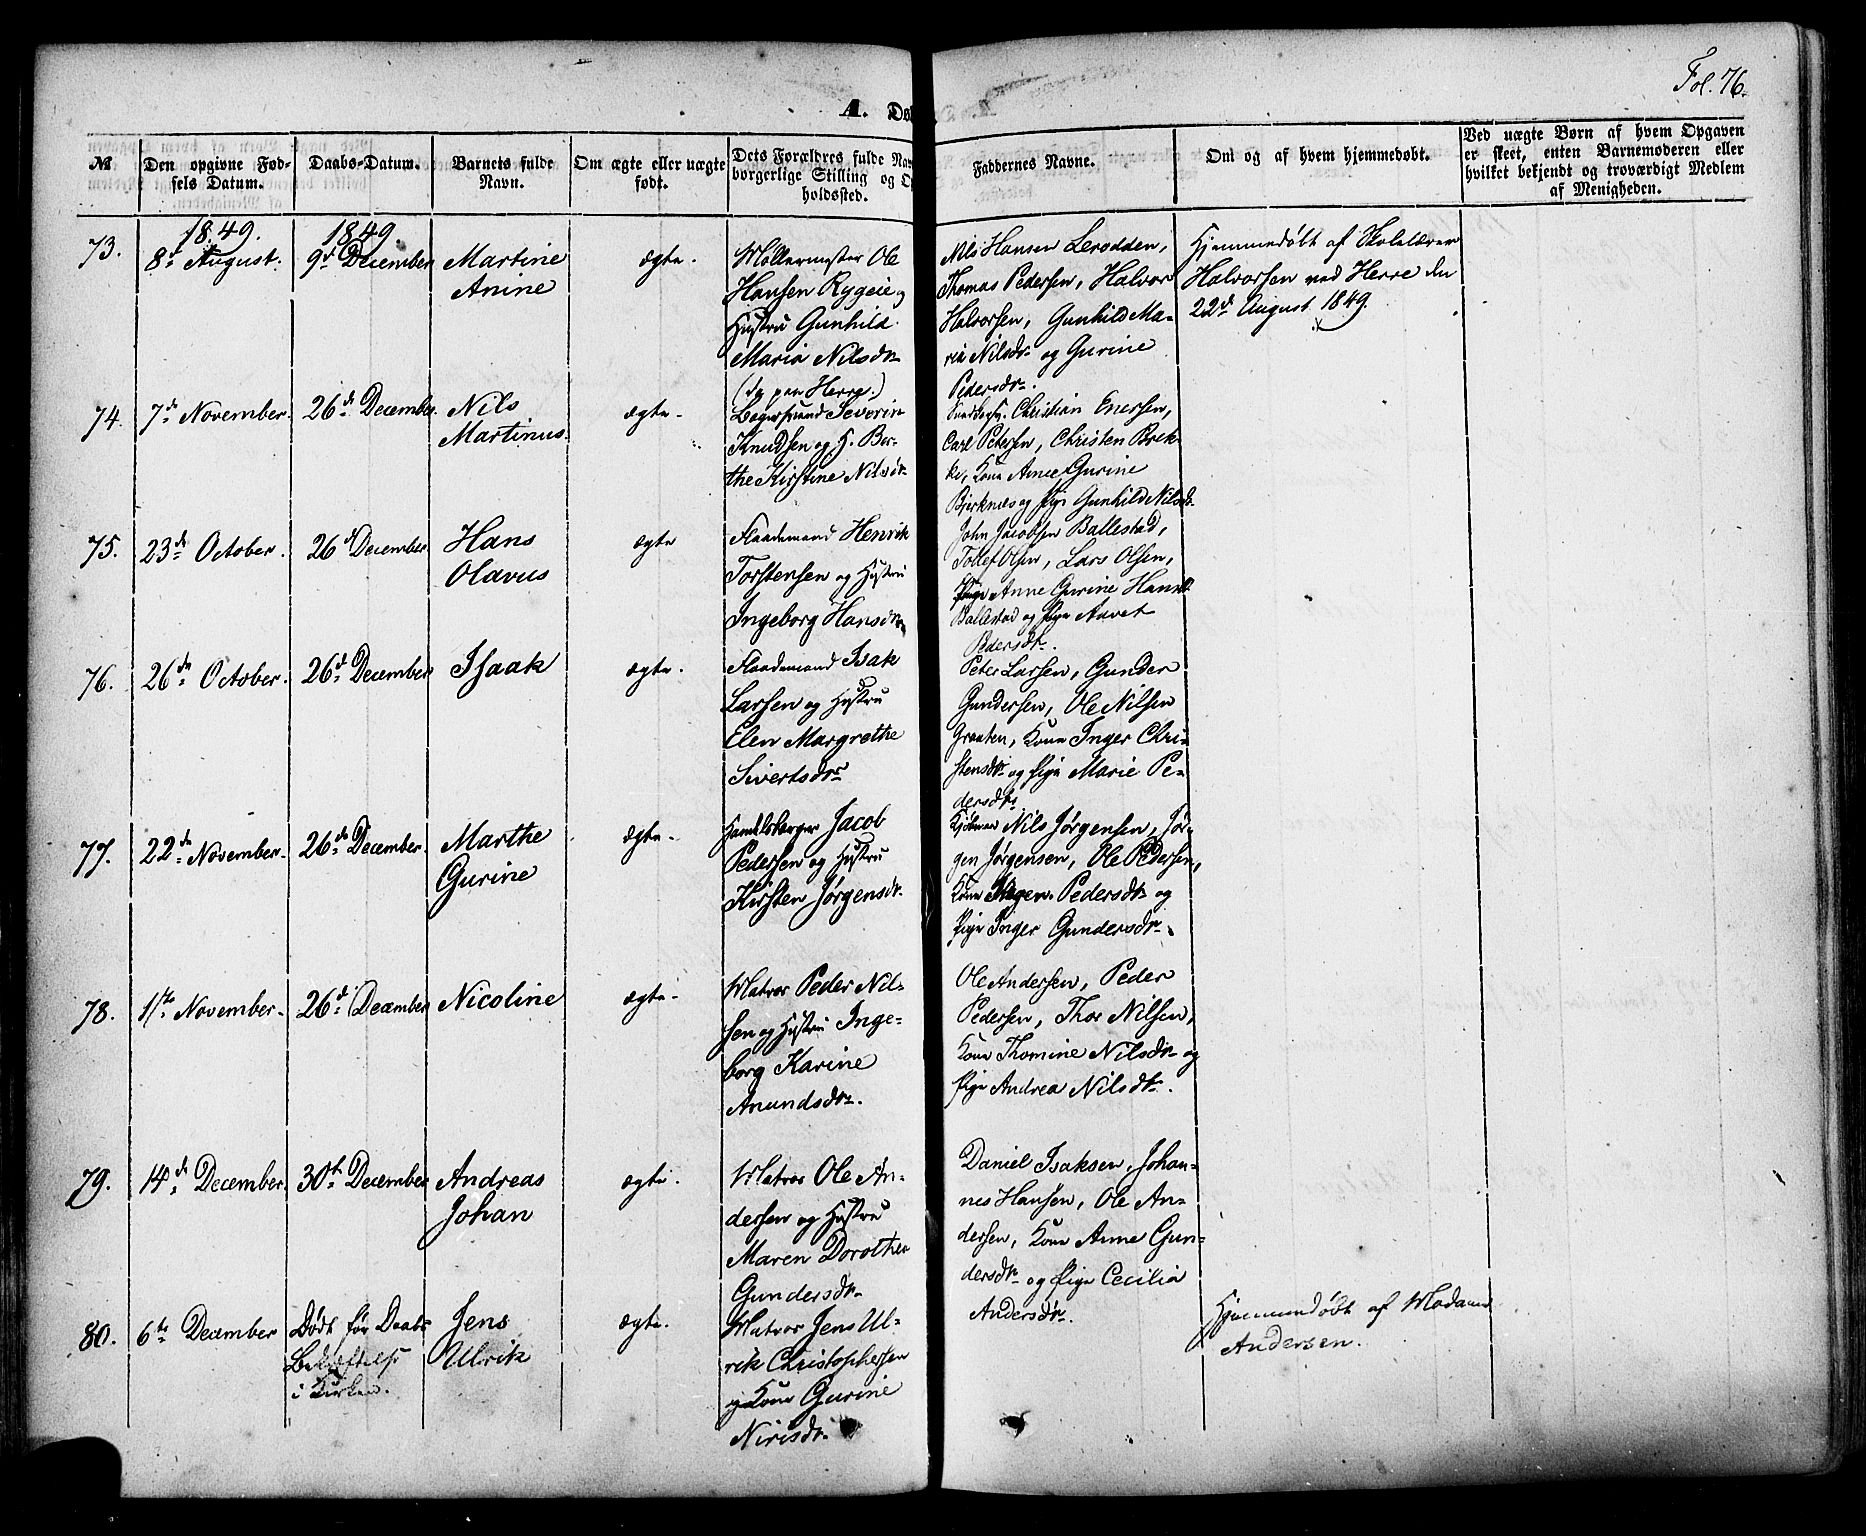 Fol. 76.
A. Dø
№
Den opgivne Fød-
sels Datum.
Daabs-Datum.
Barnets fulde
Navn.
Om ægte eller uægte
født.
Dets Forældres fulde Nav
borgerlige Stilling og Op
holdssted.
Faddernes Navne.
Om og af hvem hjemmedøbt.
Ved uægte Børn af hvem Opgaven
er skeet, enten Barnemoderen eller
hvilket bekjendt og troværdigt Medlem
af Menigheden.
1849.
1849
73.
8de August.
9de December
Martine
Anine
ægte.
Møllermester Ole
Hansen Rygeie og
Hustru Gunhild
Maria Nilsdr
(dg paa Herre.)
Nils Hansen Lerodden,
Thomas Pedersen, Halvor
Halvorsen, Gunhild Ma-
ria Nilsdr og Gurine
Pedersdr.
Hjemmedøbt af Skolelærer
Halvorsen ved Herre den
22de August 1849.
74.
7de November.
26de December.
Nils
Martinus.
ægte.
Severin
Knudsen og H. Ber-
the Kirstine Nilsdr
Christian Enersen,
Carl Petersen, Christen Brek-
ke, Kone Anne Gurine
Bjerknæs og Pige Gunhild Nilsdr.
75.
23de October.
26de December.
Hans
Olavus
ægte
Flaademand Henrik
Torstensen og Hustru
Ingeborg Hansdr
John Jacobsen Ballestad,
Tollef Olsen, Lars Olsen,
Anne Gurine Hansdr
Ballestad og Pige Aavet
Pedersdr.
76.
26de October.
26de December
Isaak
ægte.
Flaademand Isak
Larsen og Hustru
Elen Margrethe
Sivertsdr
Peter Larsen, Gunder
Gundersen, Ole Nilsen
Graaten, Kone Inger Chri-
stensdr og Pige Marie Pe-
dersdr.
77.
22de November.
26de December.
Marthe
Gurine
ægte.
Handelsborger Jacob
Pedersen og Hustru
Kirsten Jørgensdr.
Kjøbmd Nils Jørgensen, Jør-
gen Jørgensen, Ole Pedersen,
Kone Pedersdr og
Pige Inger Gundersdr.
78.
1ste November.
26de December
Nicoline
ægte.
Matros Peder Nil-
sen og Hustru Inge-
borg Karine
Anundsdr.
Ole Andersen, Peder
Pedersen, Thor Nilsen,
Kone Thomine Nilsdr og
Pige Andrea Nilsdr.
79.
14de December.
30te December
Andreas
Johan
ægte.
Matros Ole An-
dersen og Hustru
Maren Dorothea
Gundersdr.
Daniel Isaksen, Johan-
nes Hansen, Ole An-
dersen, Kone Anne Gun-
dersdr og Pige Cecilia
Andersdr.
80.
6te December
Dødt før Daabs
Bekræftelse
i Kirken.
Jens
Ulrik
ægte.
Matros Jens Ul-
rik Christophersen
og Kone Gurine
Nirisdr.
Hjemmedøbt af Madame
Andersen.